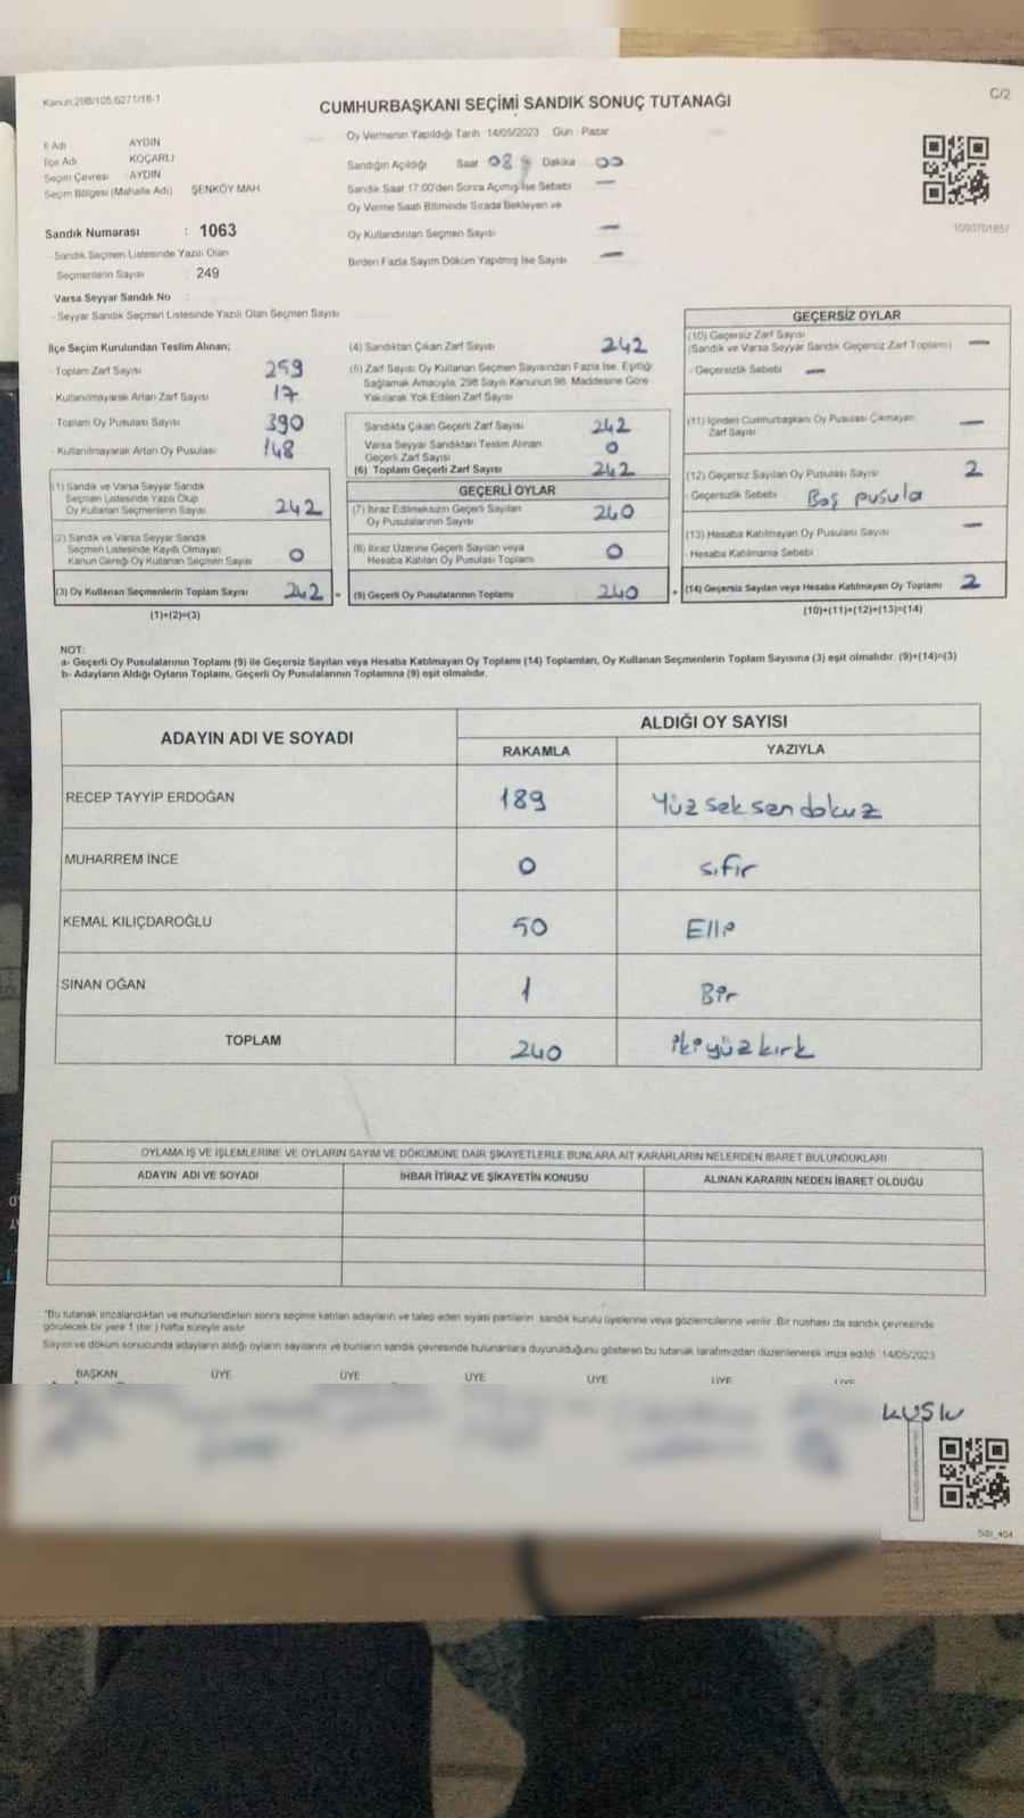 Kanun:298/105,6271/18-1
C/2
CUMHURBAŞKANI SEÇİMİ SANDIK SONUÇ TUTANAĞI
İl Adı AYDIN
İlçe Adı KOÇARLI
Seçim Çevresi AYDIN
Seçim Bölgesi (Mahalle Adı) ŞENKÖY MAH.
Oy Vermenin Yapıldığı Tarih 14/05/2023 Gün : Pazar
Sandığın Açıldığı Saat 08 Dakika 00
Sandık Saat 17:00'den Sonra Açmış İse Sebebi —
Oy Verme Saati Bitiminde Sırada Bekleyen ve
Oy Kullandırılan Seçmen Sayısı —
Birden Fazla Sayım Döküm Yapılmış İse Sayısı —
Sandık Numarası : 1063
Sandık Seçmen Listesinde Yazılı Olan
Seçmenlerin Sayısı 249
Varsa Seyyar Sandık No
- Seyyar Sandık Seçmen Listesinde Yazılı Olan Seçmen Sayısı
İlçe Seçim Kurulundan Teslim Alınan;
Toplam Zarf Sayısı 259
Kullanılmayarak Artan Zarf Sayısı 17
Toplam Oy Pusulası Sayısı 390
Kullanılmayarak Artan Oy Pusulası 148
(1) Sandık ve Varsa Seyyar Sandık
Seçmen Listesinde Yazılı Olup
Oy Kullanan Seçmenlerin Sayısı 242
(2) Sandık ve Varsa Seyyar Sandık
Seçmen Listesinde Kayıtlı Olmayan
Kanun Gereği Oy Kullanan Seçmen Sayısı 0
(3) Oy Kullanan Seçmenlerin Toplam Sayısı 242
(1)+(2)=(3)
(4) Sandıktan Çıkan Zarf Sayısı 242
(5) Zarf Sayısı Oy Kullanan Seçmen Sayısından Fazla İse, Eşitliği
Sağlamak Amacıyla, 298 Sayılı Kanunun 98. Maddesine Göre
Yakılarak Yok Edilen Zarf Sayısı
Sandıkta Çıkan Geçerli Zarf Sayısı 242
Varsa Seyyar Sandıktan Teslim Alınan
Geçerli Zarf Sayısı 0
(6) Toplam Geçerli Zarf Sayısı 242
GEÇERLİ OYLAR
(7) İtiraz Edilmeksizin Geçerli Sayılan
Oy Pusulalarının Sayısı 240
(8) İtiraz Üzerine Geçerli Sayılan veya
Hesaba Katılan Oy Pusulası Toplamı 0
(9) Geçerli Oy Pusulalarının Toplamı 240
GEÇERSİZ OYLAR
(10) Geçersiz Zarf Sayısı
(Sandık ve Varsa Seyyar Sandık Geçersiz Zarf Toplamı) —
- Geçersizlik Sebebi —
(11) İçinden Cumhurbaşkanı Oy Pusulası Çıkmayan
Zarf Sayısı —
(12) Geçersiz Sayılan Oy Pusulası Sayısı 2
- Geçersizlik Sebebi Boş pusula
(13) Hesaba Katılmayan Oy Pusulası Sayısı —
- Hesaba Katılmama Sebebi
(14) Geçersiz Sayılan veya Hesaba Katılmayan Oy Toplamı 2
(10)+(11)+(12)+(13)=(14)
NOT:
a- Geçerli Oy Pusulalarının Toplamı (9) ile Geçersiz Sayılan veya Hesaba Katılmayan Oy Toplamı (14) Toplamları, Oy Kullanan Seçmenlerin Toplam Sayısına (3) eşit olmalıdır. (9)+(14)=(3)
b- Adayların Aldığı Oyların Toplamı, Geçerli Oy Pusulalarının Toplamına (9) eşit olmalıdır.
ADAYIN ADI VE SOYADI
ALDIĞI OY SAYISI
RAKAMLA YAZIYLA
RECEP TAYYİP ERDOĞAN 189 Yüz seksen dokuz
MUHARREM İNCE 0 sıfır
KEMAL KILIÇDAROĞLU 50 Elli
SİNAN OĞAN 1 Bir
TOPLAM 240 ikiyüzkırk
OYLAMA İŞ VE İŞLEMLERİNE VE OYLARIN SAYIM VE DÖKÜMÜNE DAİR ŞİKAYETLERLE BUNLARA AİT KARARLARIN NELERDEN İBARET BULUNDUKLARI
ADAYIN ADI VE SOYADI İHBAR İTİRAZ VE ŞİKAYETİN KONUSU ALINAN KARARIN NEDEN İBARET OLDUĞU
*Bu tutanak imzalandıktan ve mühürlendikten sonra seçime katılan adayların ve talep eden siyasi partilerin sandık kurulu üyelerine veya gözlemcilerine verilir. Bir nüshası da sandık çevresinde
görülecek bir yere 1 (bir) hafta süreyle asılır.
Sayım ve döküm sonucunda adayların aldığı oyların sayılarını ve bunların sandık çevresinde bulunanlara duyurulduğunu gösteren bu tutanak tarafımızdan düzenlenerek imza edildi. 14/05/2023
BAŞKAN ÜYE ÜYE ÜYE ÜYE ÜYE ÜYE